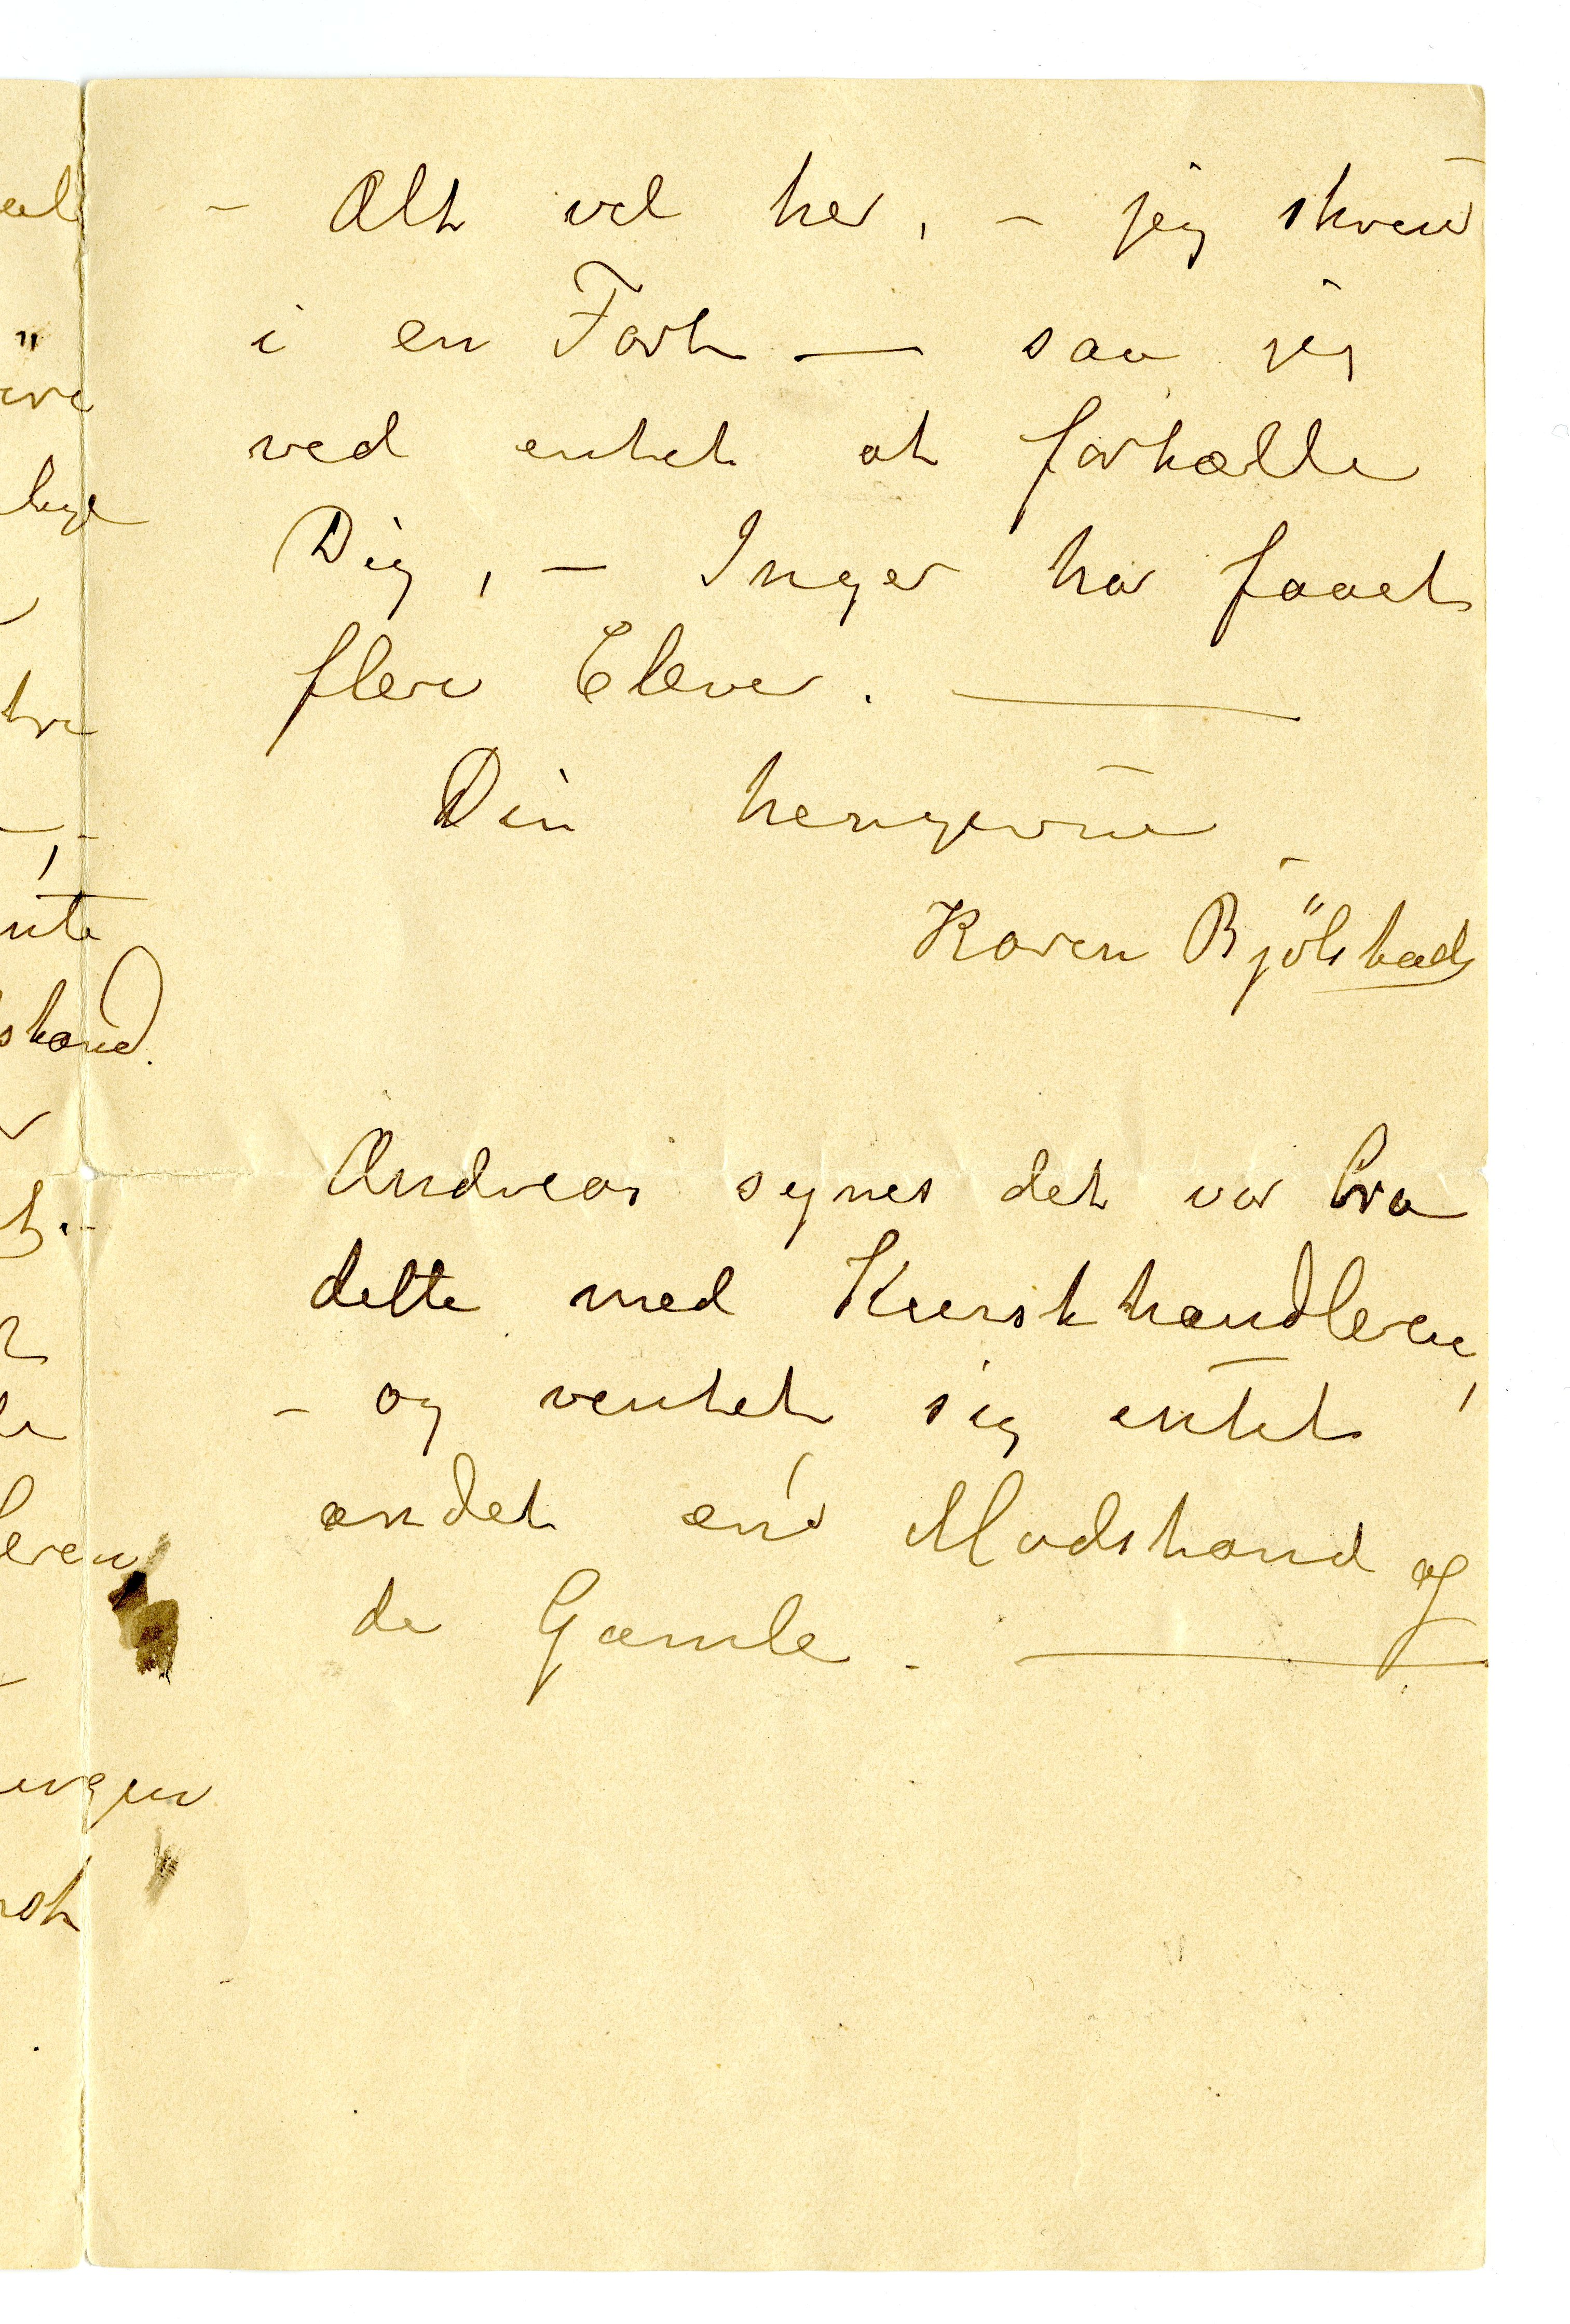 - Alt vel her, - jeg skriver
i en Fart — saa jeg
ved intet at fortælle
Dig, - Inger har faaet
flere Elever. —
Din hengivne
Karen Bjölstad
Andreas synes det var bra
dette med Kunsthandleren,
- og ventet sig intet
andet end Modstand af
de Gamle. —